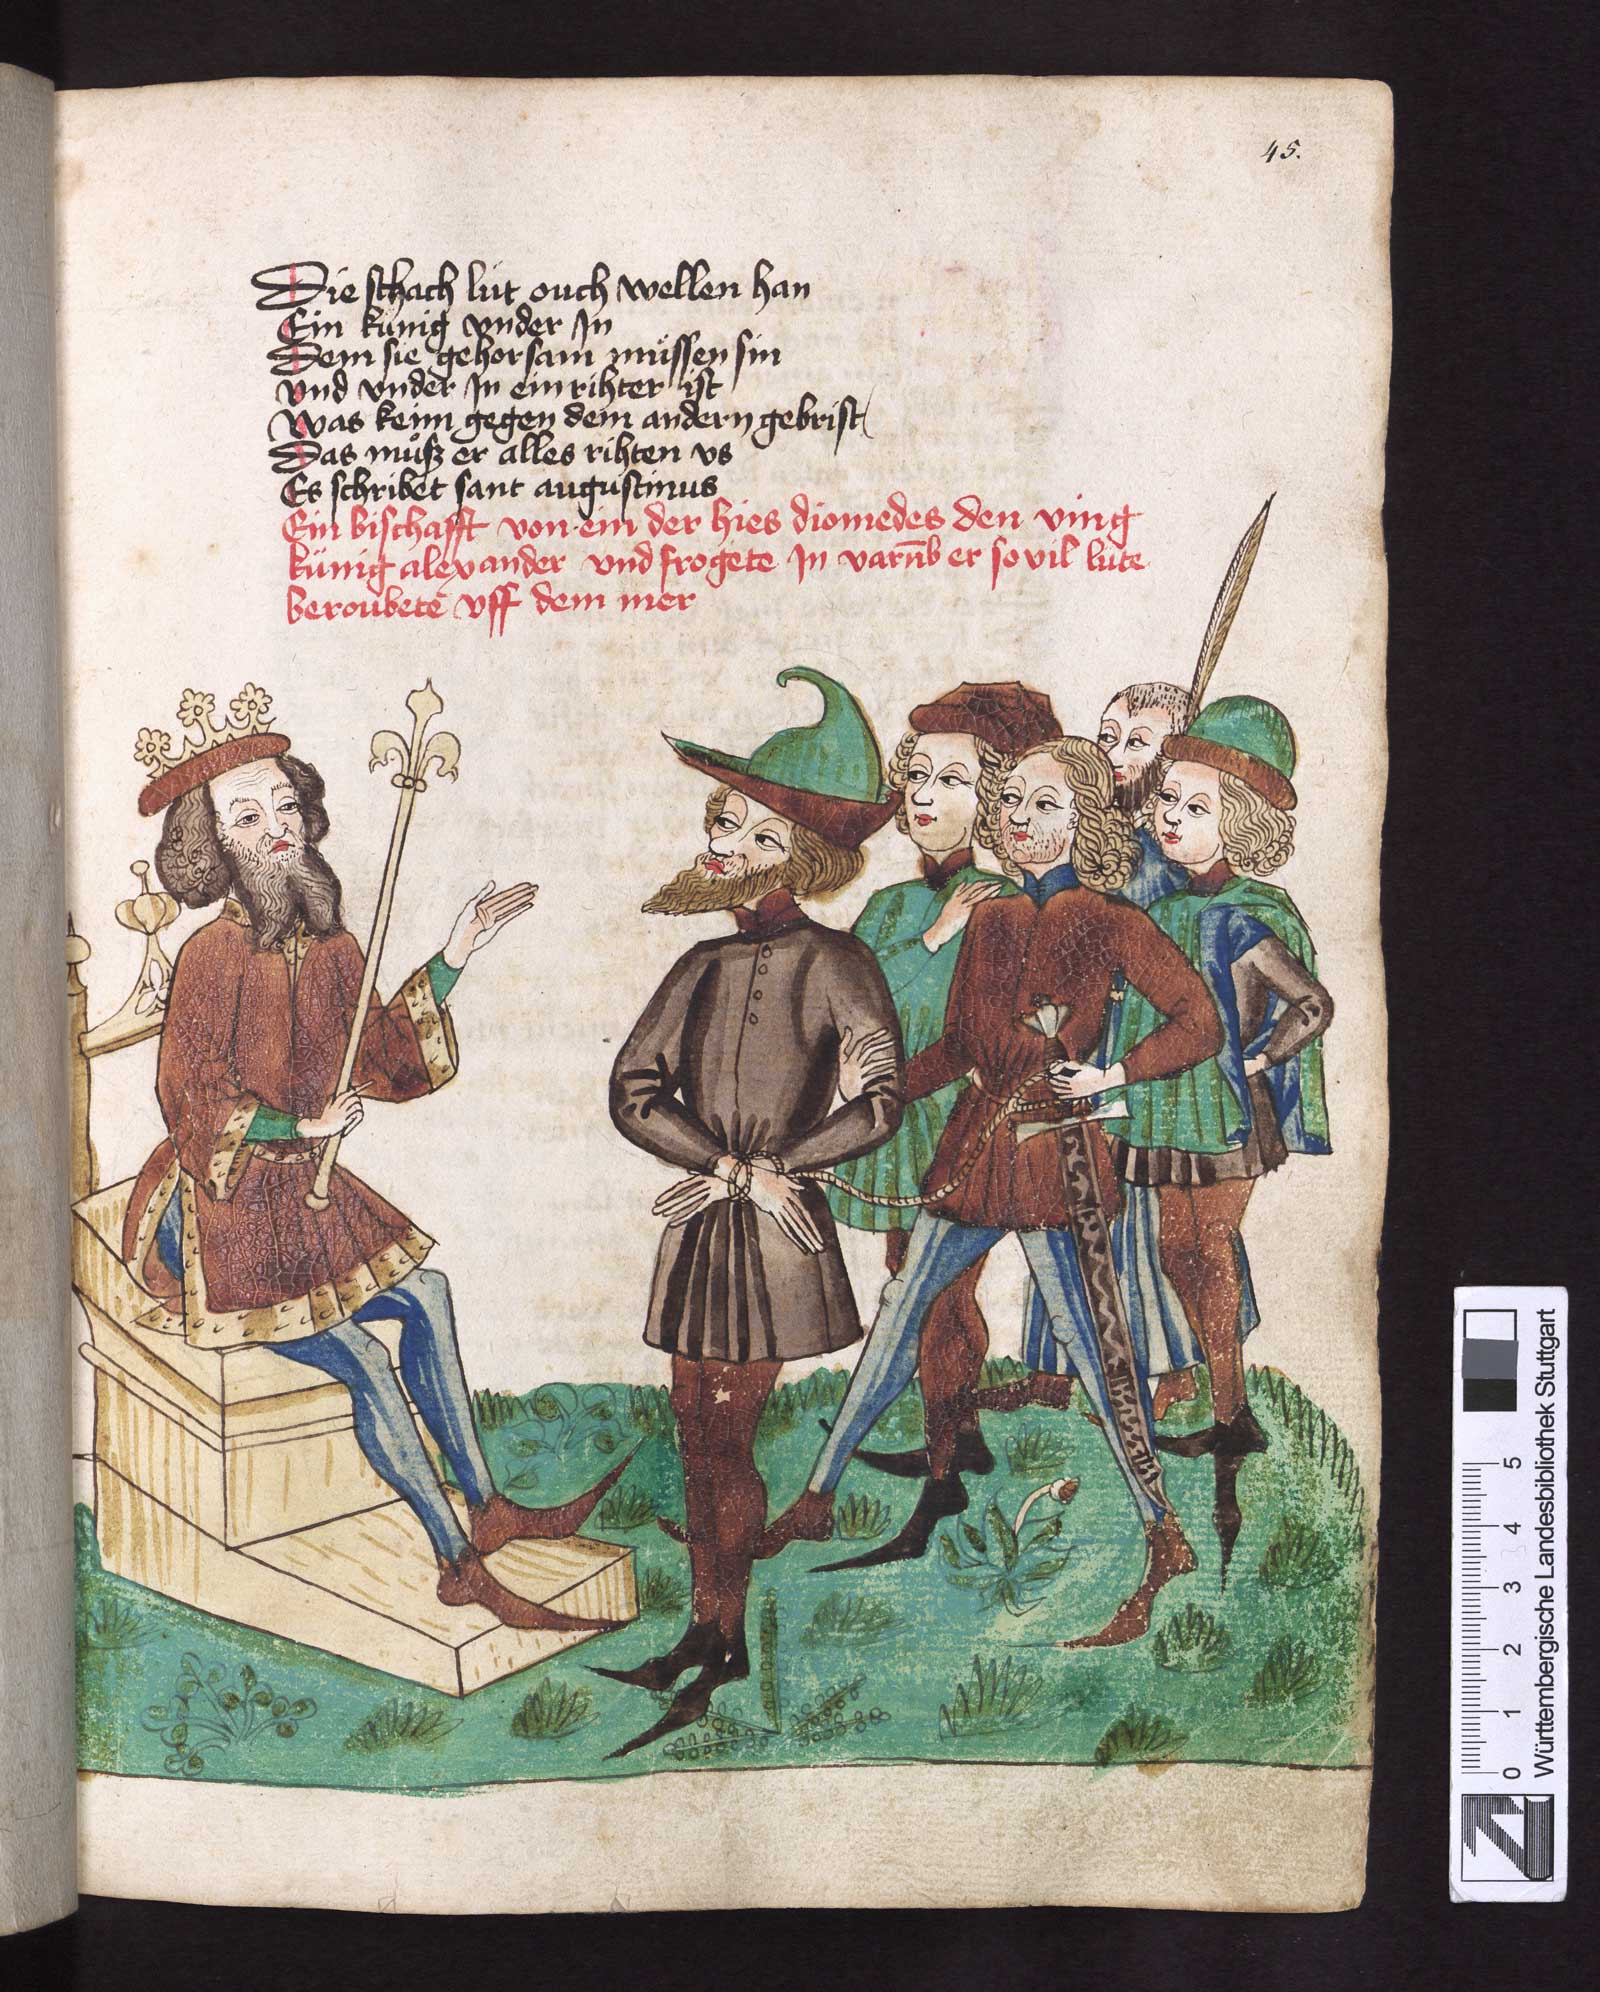 45.
Die schach lüt ouch wellen han
Ein künig vnder In
Dem sie gehorsam müssen sin
vnd vnder In ein rihter ist
Was keim gegen dem andern gebrist
Das müsz er alles rihten vs
Es schribet sant augustinus
Ein bischafft von ein der hies diomedes den ving
künig alexander vnd frogete In varūb er so vil lute
beroubete vff dem mer
0 1 2 3 4 5
Württembergische Landesbibliothek Stuttgart